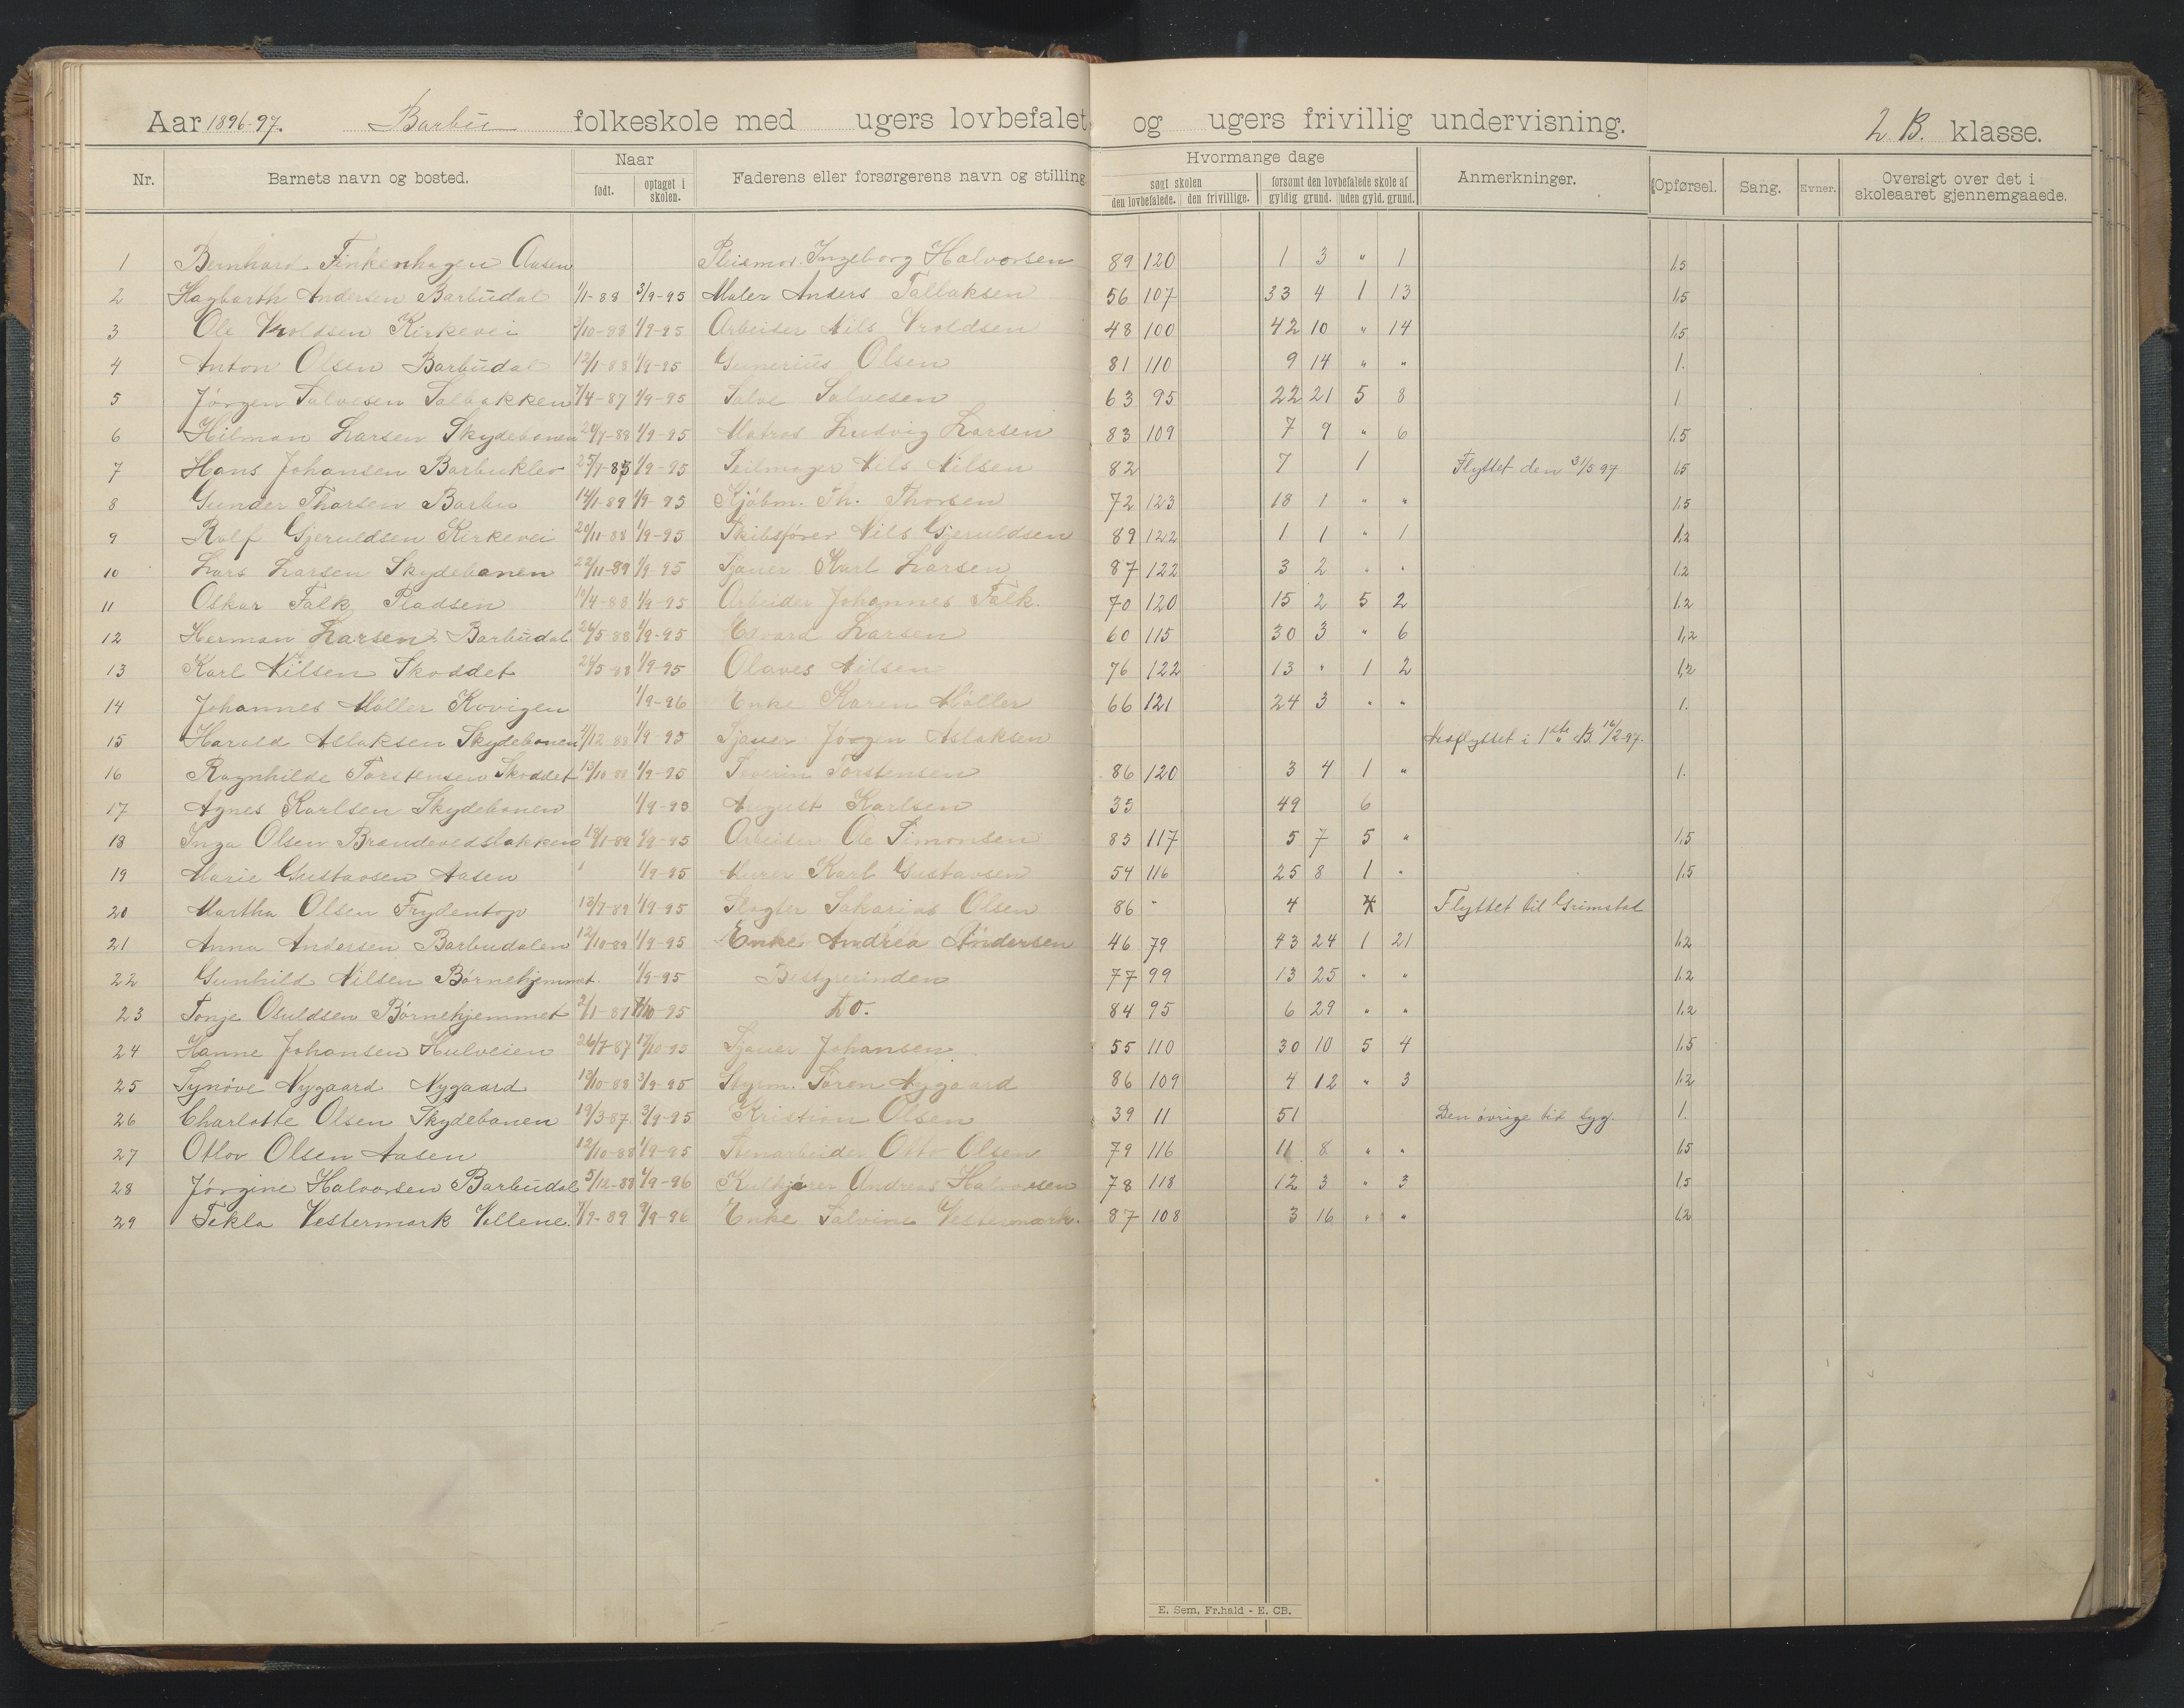 Aar 1896-97. Barbu folkeskole med ugers lovbefalet og ugers frivillig undervisning. 2 B. klasse.
Nr. Barnets navn og bosted. Naar født. optaget i skolen. Faderens eller forsørgerens navn og stilling Hvormange dage søgt skolen den lovbefalede. den frivillige. forsømt den lovbefalede skole af gyldig grund. uden gyld. grund. Anmerkninger. Opførsel. Sang. Evner. Oversigt over det i skoleaaret gjennemgaaede.
1 Bernhard Finkenhagen Aasen Pleiemor Ingeborg Halvorsen 89 120 1 3 " 1 1.5
2 Hagbarth Andersen Barbudal 1/1-88 3/9-95 Maler Anders Tallaksen 56 107 33 4 1 13 1.5
3 Ole Vroldsen Kirkevei /10-88 1/9-95 Arbeider Nils Vroldsen 48 100 42 10 " 14 1.5
4 Anton Olsen Barbudal 12/1-88 1/9-95 Gunerius Olsen 81 110 9 14 " " 1.
5 Jörgen Salvesen Solbakken 7/4-87 1/9-95 Salve Salvesen 63 95 22 21 5 8 1
6 Hilman Larsen Skydebanen 20/7-88 1/9-95 Matros Ludvig Larsen 83 109 7 9 " 6 1.5
7 Hans Johansen Barbuklev 25/7-85 1/9-95 Seilmager Nils Nilsen 82 7 1 Flyttet den 31/5 97. 1.5
8 Gunder Thorsen Barbu 14/1-89 1/9-95 Kjöbm. Th. Thorsen 72 123 18 1 " " 1.5
9 Rolf Gjeruldsen Kirkevei 20/11-88 1/9-95 Skibsförer Nils Gjeruldsen 89 122 1 1 " 1 1.2
10 Lars Larsen Skydebanen 22/11-89 1/9-95 Sjauer Karl Larsen 87 122 3 2 " " 1.2
11 Oskar Falk Pladsen 10/4-88 1/9-95 Arbeider Johannes Falk. 70 120 15 2 5 2 1.2
12 Herman Larsen Barbudal 24/5-88 1/9-95 Edvard Larsen 60 115 30 3 " 6 1,2
13 Karl Nilsen Skoddet 24/5-88 1/9-95 Olaves Nilsen 76 122 13 " 1 2 1,2
14 Johannes Møller Kovigen 1/9-96 Enke Karen Møller 66 121 24 3 " " 1.
15 Harald Aslaksen Skydebanen /12-88 1/9-95 Sjauer Jörgen Aslaksen Nedflyttet i 1ste B. 16/2-97.
16 Ragnhilde Torstensen Skoddet 13/10-88 1/9-95 Severin Torstensen 86 120 3 4 1 " 1.
17 Agnes Karlsen Skydebanen 1/9-95 August Karlsen 35 49 6
18 Inga Olsen 18/1-89 1/9-95 Arbeider Ole Simonsen 83 117 5 7 5 " 1.5
19 Marie Gustavsen Aasen 1/9-95 Murer Karl Gustavsen 54 116 25 8 1 " 1.5
20 Martha Olsen Frydentop 13/7-89 1/9-95 Slagter Sakarias Olsen 86 " 4 Flyttet til Grimstad
21 Anna Andersen Barbudalen 12/10-89 1/9-95 Enke Andrea Andersen 46 79 43 24 1 21 1.2
22 Gunhild Nilsen Børnehjemmet. 1/9-95 Bestyrerinden 77 99 13 25 " " 1.2
23 Tonje Osuldsen Børnehjemmet 2/1-87 /10-95 do. 84 95 6 29 " " 1.2
24 Hanne Johansen Hulveien 26/7-87 17/10-95 Sjauer Johansen 55 110 30 10 5 4 1.5
25 Synöve Nygaard Nygaard 19/10-88 3/9-95 Styrm. Sören Nygaard 86 109 4 12 " 3 1.2
26 Charlotte Olsen Skydebanen 19/3-87 3/9-95 Kristian Olsen 39 11 51 Den övrige tid syg. 1.
27 Otlov Olsen Aasen 12/10-88 1/9-95 Stenarbeider Otto Olsen 79 116 11 8 " " 1.5
28 Jörgine Halvorsen Barbudal 5/12-88 1/9-96 Kulkjörer Andreas Halvorsen 78 118 12 3 " 3 1.5
29 Tekla Vestermark Vollene. 7/9-89 3/9-96 Enke Salvine Vestermark. 87 108 3 16 " " 1.2
E. Sem, Fr.hald - E. CB.